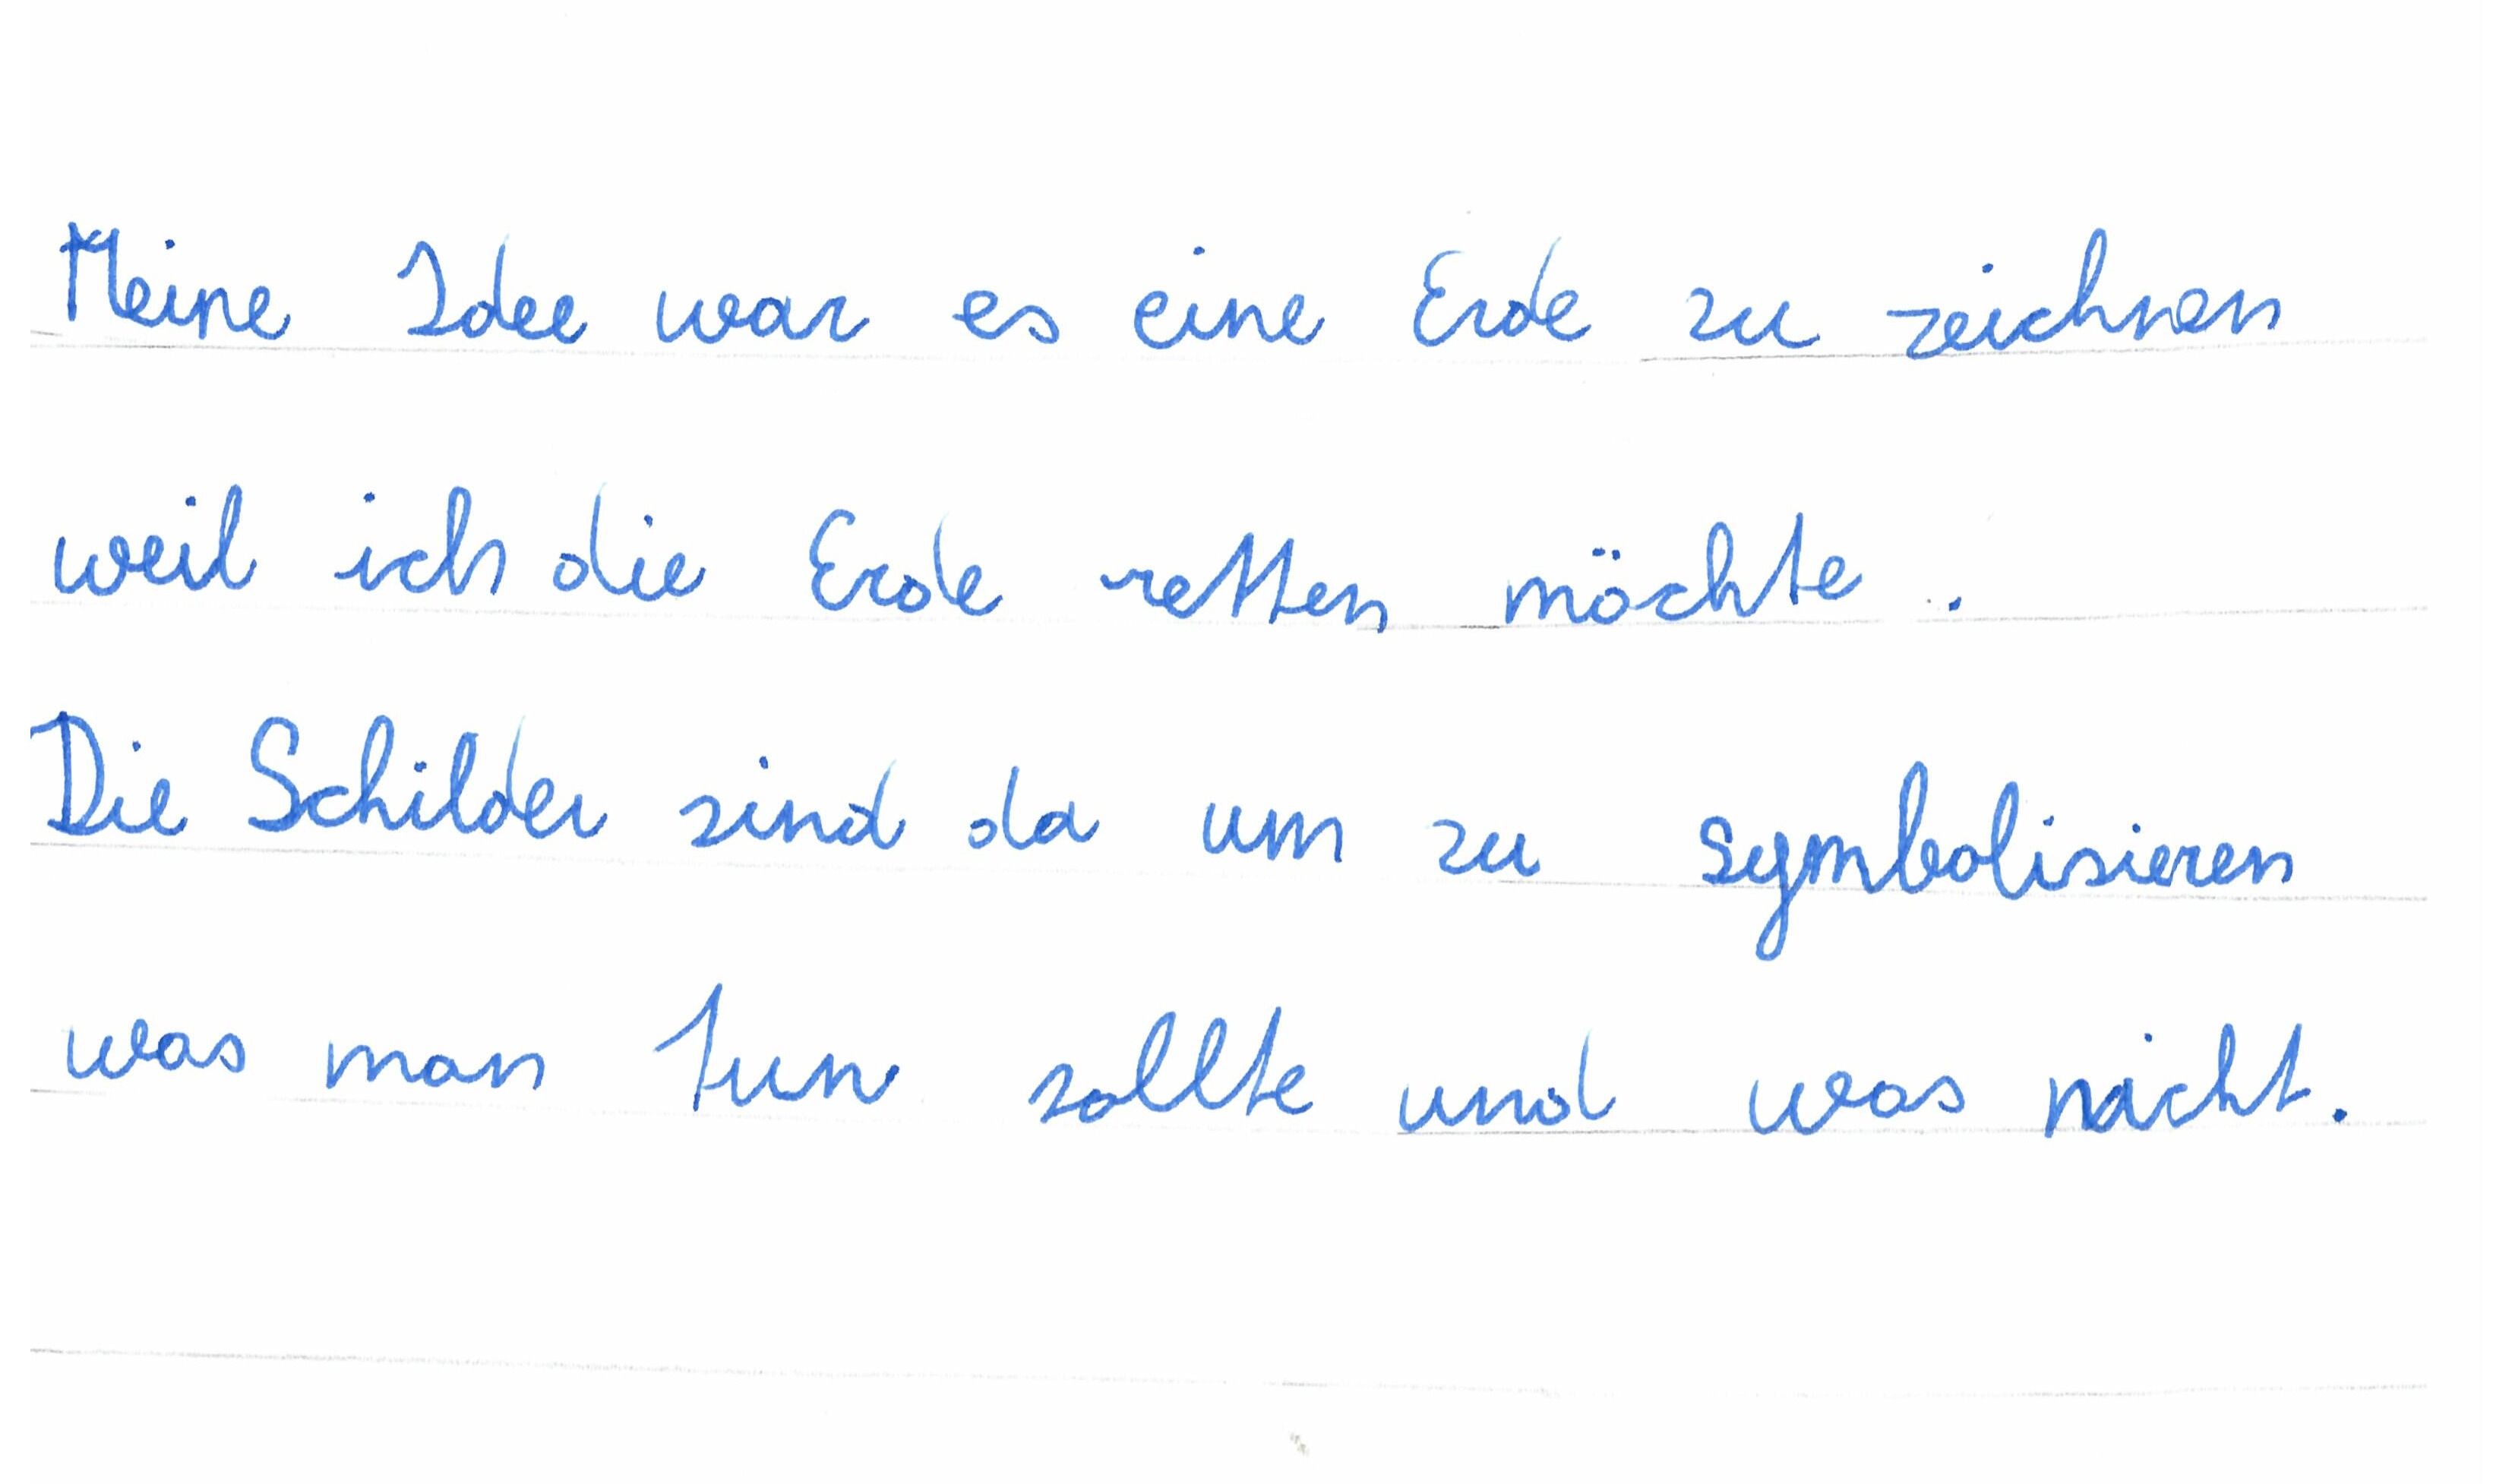 Meine Idee war es eine Erde zu zeichnen
weil ich die Erde retten möchte.
Die Schilder sind da um zu symbolisieren
was man tun sollte und was nicht.